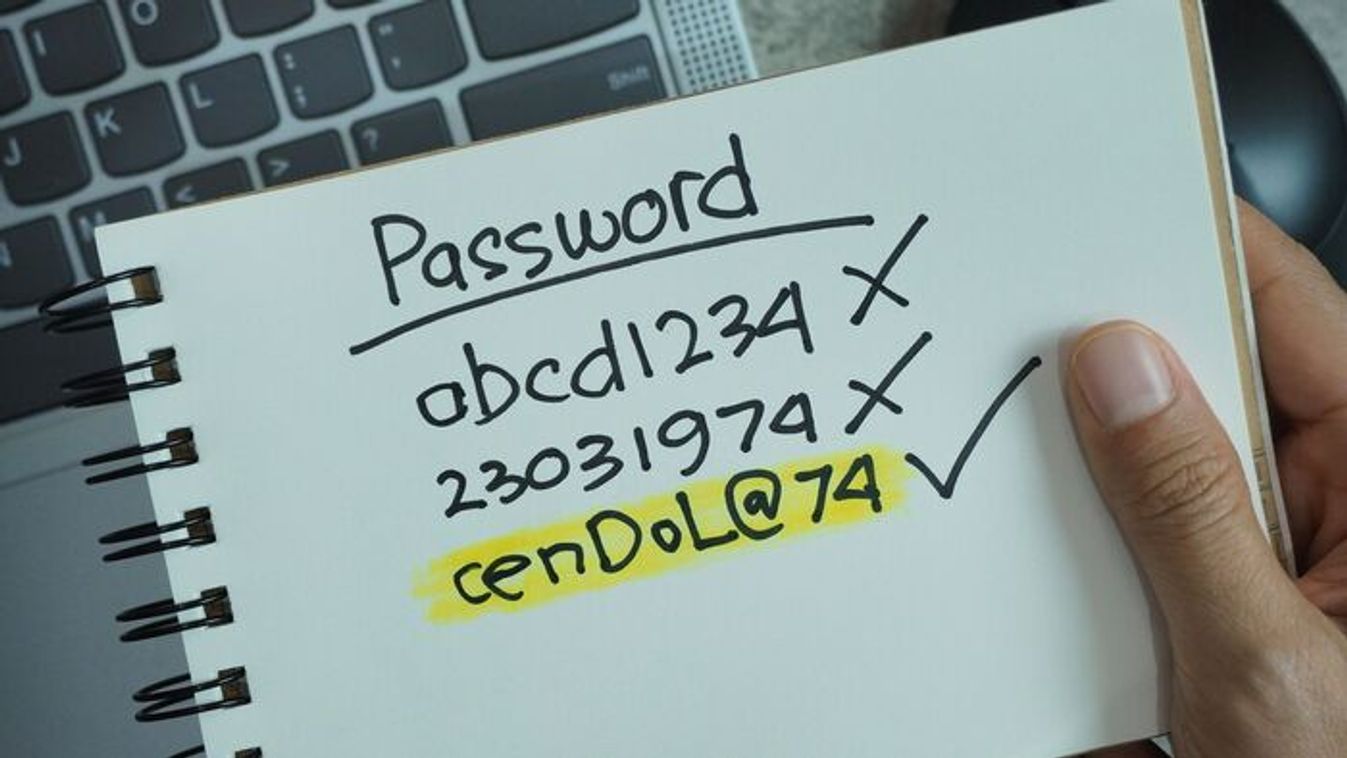 O
I
L
: ;
" '
Shift
J
K
?
>
<
M
N
Password
abcd1234 X
23031974 X
cenDoL@74 ✓